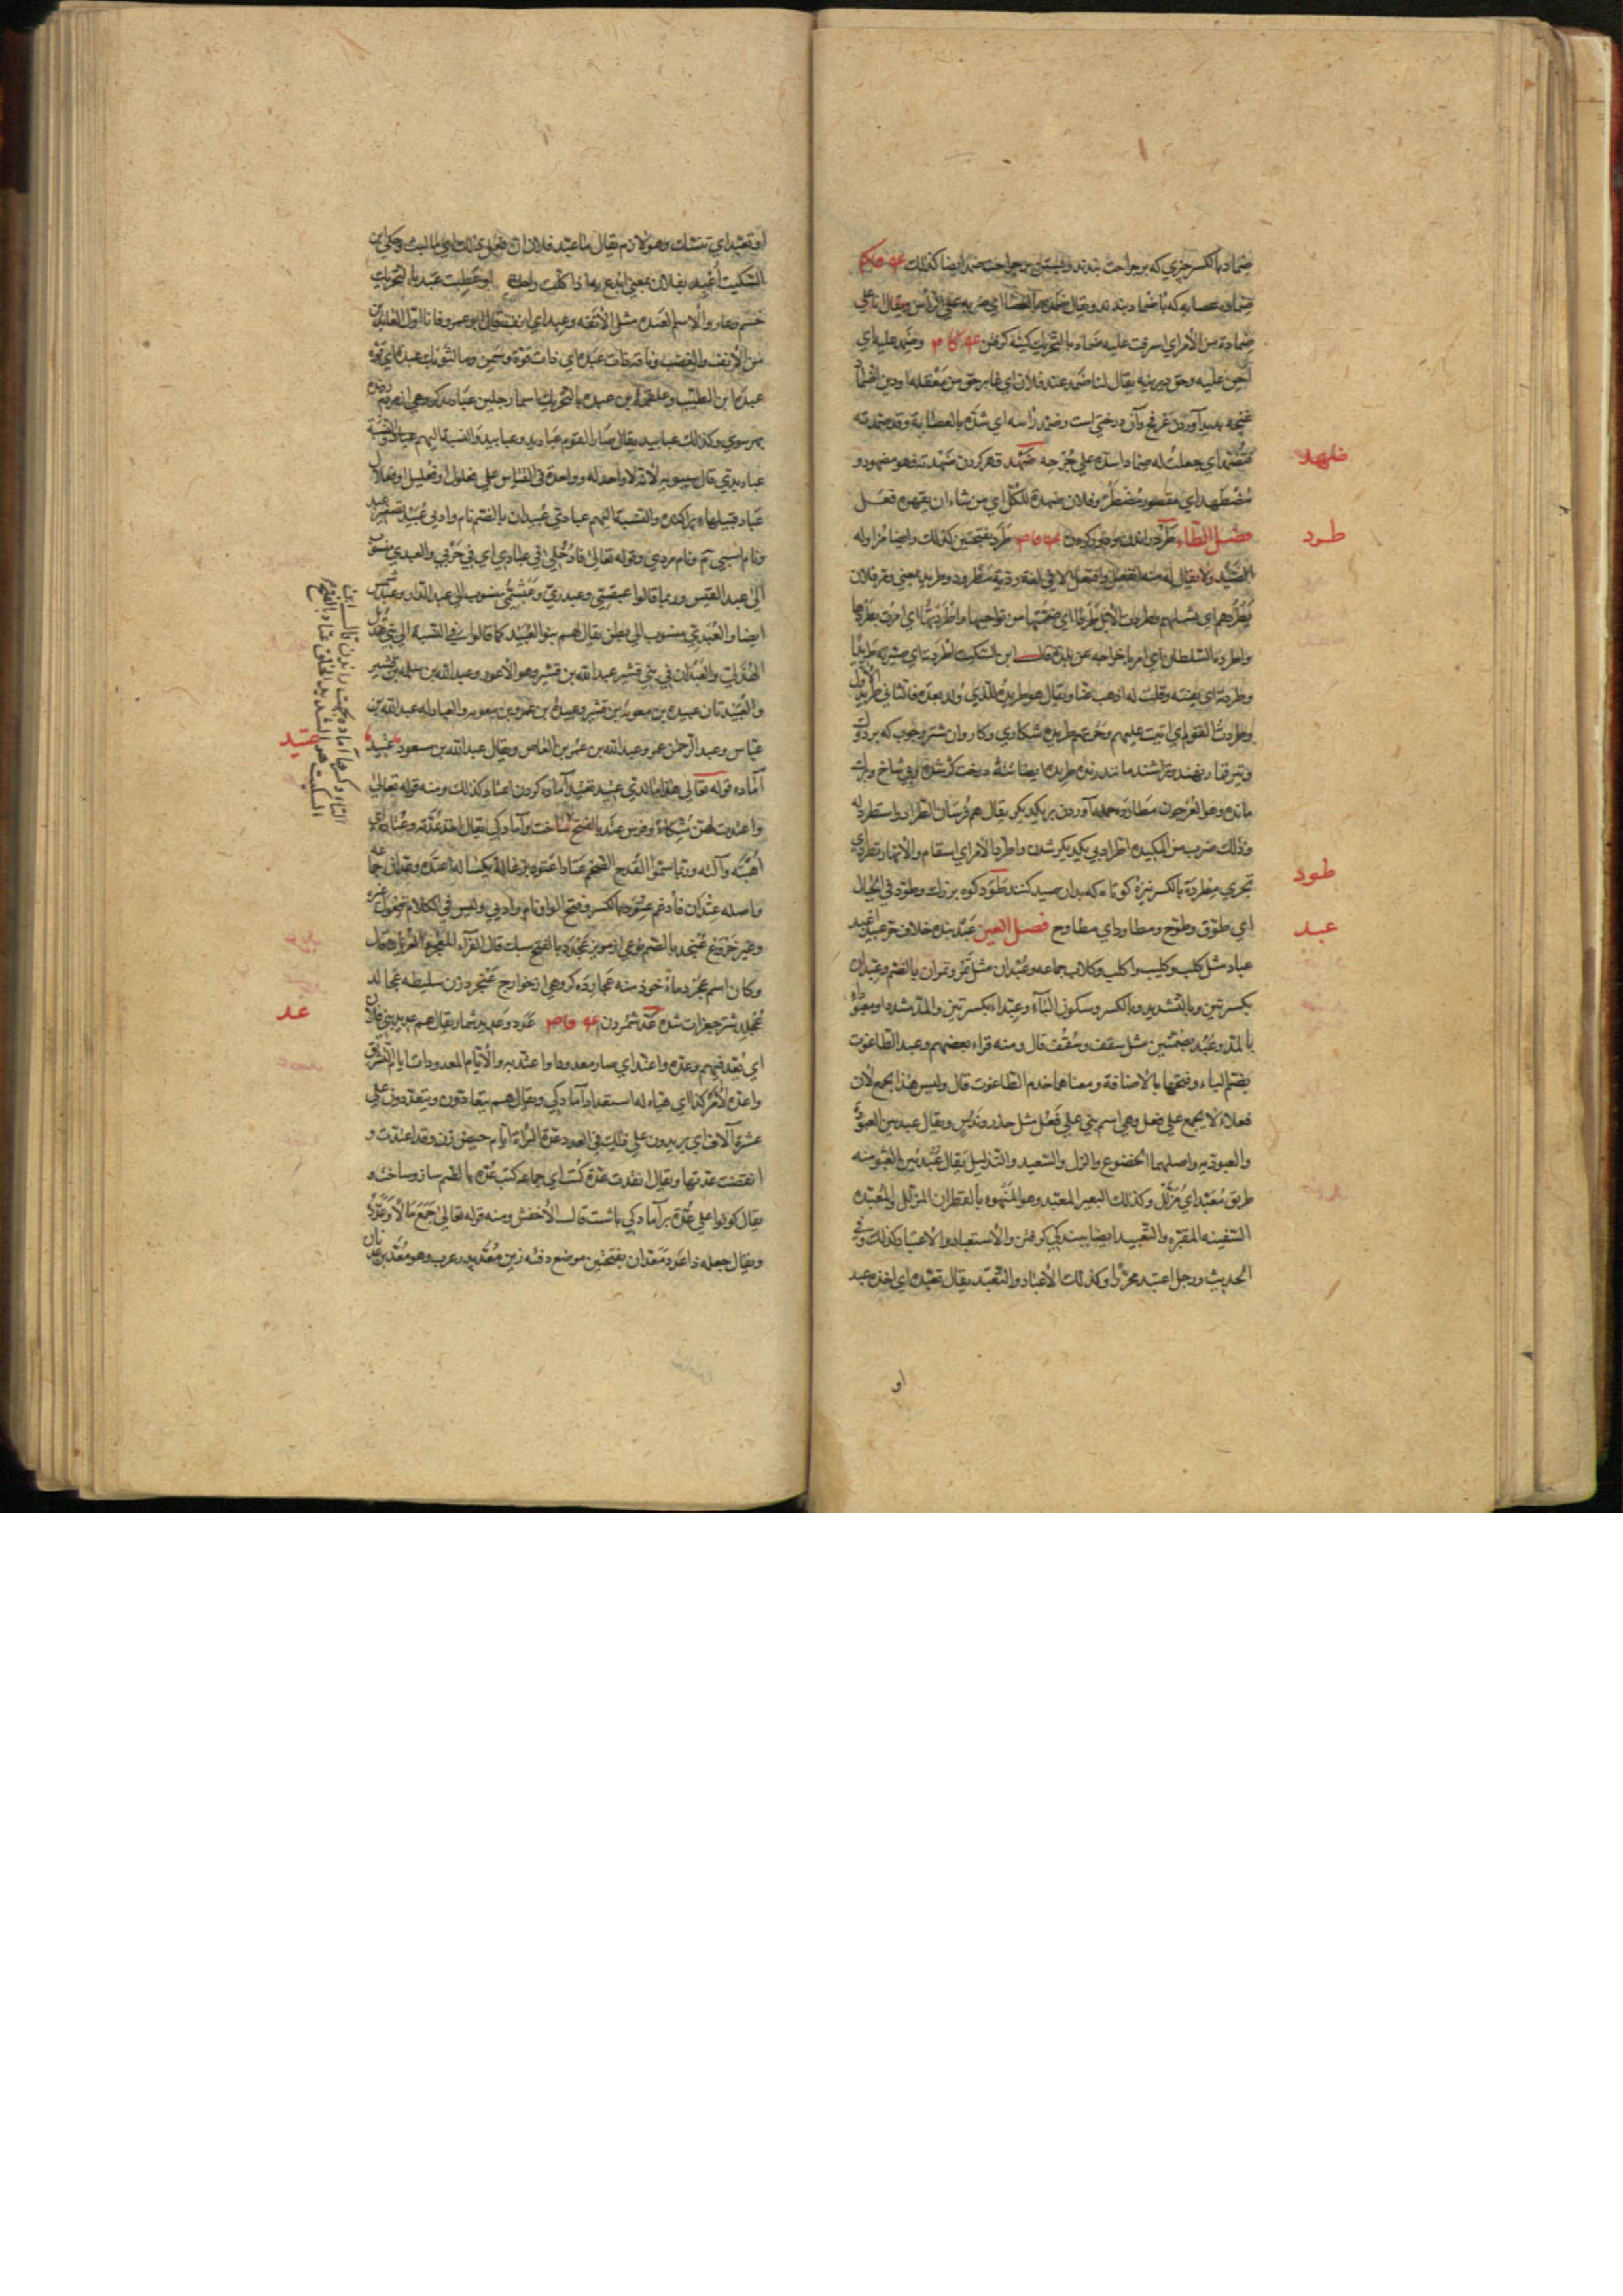 ضماد بالكسر چيزي كه بر جراحت بندند و بستن بر جراحت ضمد ايضا كذلك
ضماده عصابه كه با ضماد بندند ويقال ضمده بالعصا اي ضربه علي الرأس ويقال انا علي
ضمادة من الأمر اي اشرفت عليه ضماد بالتحريك كينه گرفتن وضمد عليه اي
احن عليه وحق ديرينه يقال لنا ضمد عند فلان اي غابر حق من معقله او دين
غنچه پديد آوردن عرفج وآن درختي است وضمد رأسه اي شده بالعصابة وقد ضمدته
فتضمد اي جعلت له ضمادا شده علي جرحه ضهد قهر كردن ضهدته فهو مضهود و
ضهد
مضطهد اي مقهور مضطر وفلان ضهدة لكل اي من شاء ان يقهره فعل
فصل الطاء طرد راندن ودور كردن طرد بفتحتين كذلك وايضا مزاوله
طرد
الصيد ولا يقال له منه انفعل وافتعل الا في لغة ردية مطرود وطريد بمعني ومر فلان
يطردهم اي يشلهم وطردت الابل طردا اي ضممتها من نواحيها واطردتها اي امرت بطردها
واطرده السلطان اي امر باخراجه عن بلده قال ابن السكيت اطردته اي صيرته طريدا
وطردته اي نفيته وقلت له اذهب عنا ويقال هو طريده للذي ولد بعده فالثاني طريد الاول
وطردت القوم اي اتيت عليهم وجزتهم طريده شكاري وكاروان شتر وچوب كه بر دوك
وتير نهند وتراشند مانند رنده طريده ايضا درخت كژ شده وبي شاخ وبرك
مانده وهو العرجون مطارده حمله آوردن بر يكديگر يقال هم فرسان الطراد واستطرد له
وذلك ضرب من المكيده اطراد پي يكديگر شدن واطرد الأمر اي استقام والأنهار تطرد اي
تجري مطردة بالكسر نيزۀ كوتاه كه بدان صيد كنند طود كوه بزرك وطود في الجبال
طود
اي طوف وطوح ومطاود اي مطاوح فصل العين عبد بنده خلاف حر عبيد اعبد
عبد
عباد مثل كلب وكليب واكلب وكلاب جماعه وعبدان مثل تمر وتمران بالضم وعبدان
بكسرتين وبالتشديد وبالكسر وسكون الباء وعبداء بكسرتين والمد مشددا ومعبوداء
بالمد وعبد بضمتين مثل سقف وسقف قال ومنه قراء بعضهم وعبد الطاغوت
بضم الباء وفتحها بالاضافة ومعناهما خدم الطاغوت قال وليس هذا بجمع لأن
فعلا لا يجمع علي فعل وهي اسم بني علي فعل مثل حذر وندس ويقال عبد بين العبودة
والعبوديه واصلهما الخضوع والذل والتعبيد والتذليل يقال عبد بين العبودة منه
طريق معبد اي مذلل وكذلك البعير المعبد وهو المهنوء بالقطران المذلل والمعبده
السفينه المقيره والتعبيد ايضا ببندگي گرفتن والاستعباد والاعباد كذلك وفي
الحديث ورجل اعبد محررا وكذلك الاعتباد والتعبد يقال تعبده اي اخذه عبد
او
او تعبد اي تنسك وهو لازم يقال ما عبد فلان ان فعل ذلك اي ما لبث وحكي ابن
السكيت أعبد بفلان بمعني ابدع به اذا كلت راحلته او عطبت عبد بالتحريك
خشم وعار والاسم العبده مثل الأنفه وعبد اي انف قال ابو عمرو فانا اول العابدين
من الأنف والغضب وناقه ذات عبده اي ذات قوة وسمن وما لثوبك عبده اي قوه
عبدة ابن الطبيب وعلقمه ابن عبده بالتحريك اسما رجلين عباديد گروهي از مردم
بهر سوي وكذلك عبابيد يقال صار القوم عباديد وعبابيد والنسبة اليهم
عباديدي قال سيبويه لأنه لا واحد له وواحده في القياس علي فعلول او فعليل او فعلال
عباد قبيلها پراكنده والنسبة اليهم عبادي عبيدان بالضم نام وادي عبيد تصغير عبد
ونام اسپي ونام مردي وقوله تعالي فادخلي في عبادي اي في حزبي والعبدي منسوب
الي عبد القيس وربما قالوا عبقسي وعبدري وعبشمي منسوب الي عبد الدار وعبد شمس
ايضا والعبدي منسوب الي بطن يقال لهم بنو العبيد كما قالوا في النسبة الي بني هذيل
الهذلي والعبدان في بني قشير عبد الله بن قشير وهو الأعور وعبد الله بن سلمه بن قشير
والعبيدتان عبيده بن معويه بن قشير وعبيدة بن عمرو بن معويه والعبادله عبد الله بن
عباس وعبد الرحمن عمر وعبد الله بن عمر بن العاص ويقال عبد الله بن مسعود عتيد
عتيد
آماده قوله تعالي هذا ما لدي عتيد تعتيد آماده كردن اعتاد كذلك ومنه قوله تعالي
واعتدت لهن متكاء وفرس عتد بالفتح ساخت وآمادگي يقال اخذ عدته وعتاده اي
اهبته وآلته وربما سموا القدح الضخم عتادا عتود بزغاله يكساله اعتده وعدان جماعه
واصله عتدان فادغم عتود بالكسر وفتح الواو نام وادي وليس في الكلام فعول غيره
وغير خروع عنجد بالضم نوعي از مويز عجرد بالفتح سبك قال الفراء
وكان اسم عجرد ماخوذ منه عجارده گروهي از خوارج عنجرد زن سليطه عجالد
عجلد شير جغرات شده عد شمردن عدد وعديد شمار يقال هم عديد بني فلان
عد
اي يعد فيهم وعده واعتد اي صار معدودا واعتد به والأيام المعدودات ايام التشريق
واعده لأمر كذا اي هياه له استعداد آمادگي ويقال هم يتعادون ويتعددون علي
عشرة آلاف اي يزيدون علي ذلك في العدد عدة المرأة ايام حيض زن وقد اعتدت و
انقضت عدتها ويقال انفذت عدة كتب اي جماعه كتب عده بالضم ساز وساخت و
يقال كونوا علي عدة بر آمادگي باشت قال الأخفش ومنه قوله تعالي جمع مالا وعدده
ويقال جعله ذا عدد معدان بفتحتين موضع دفه زين معد پدر عرب وهو معد بن عدنان